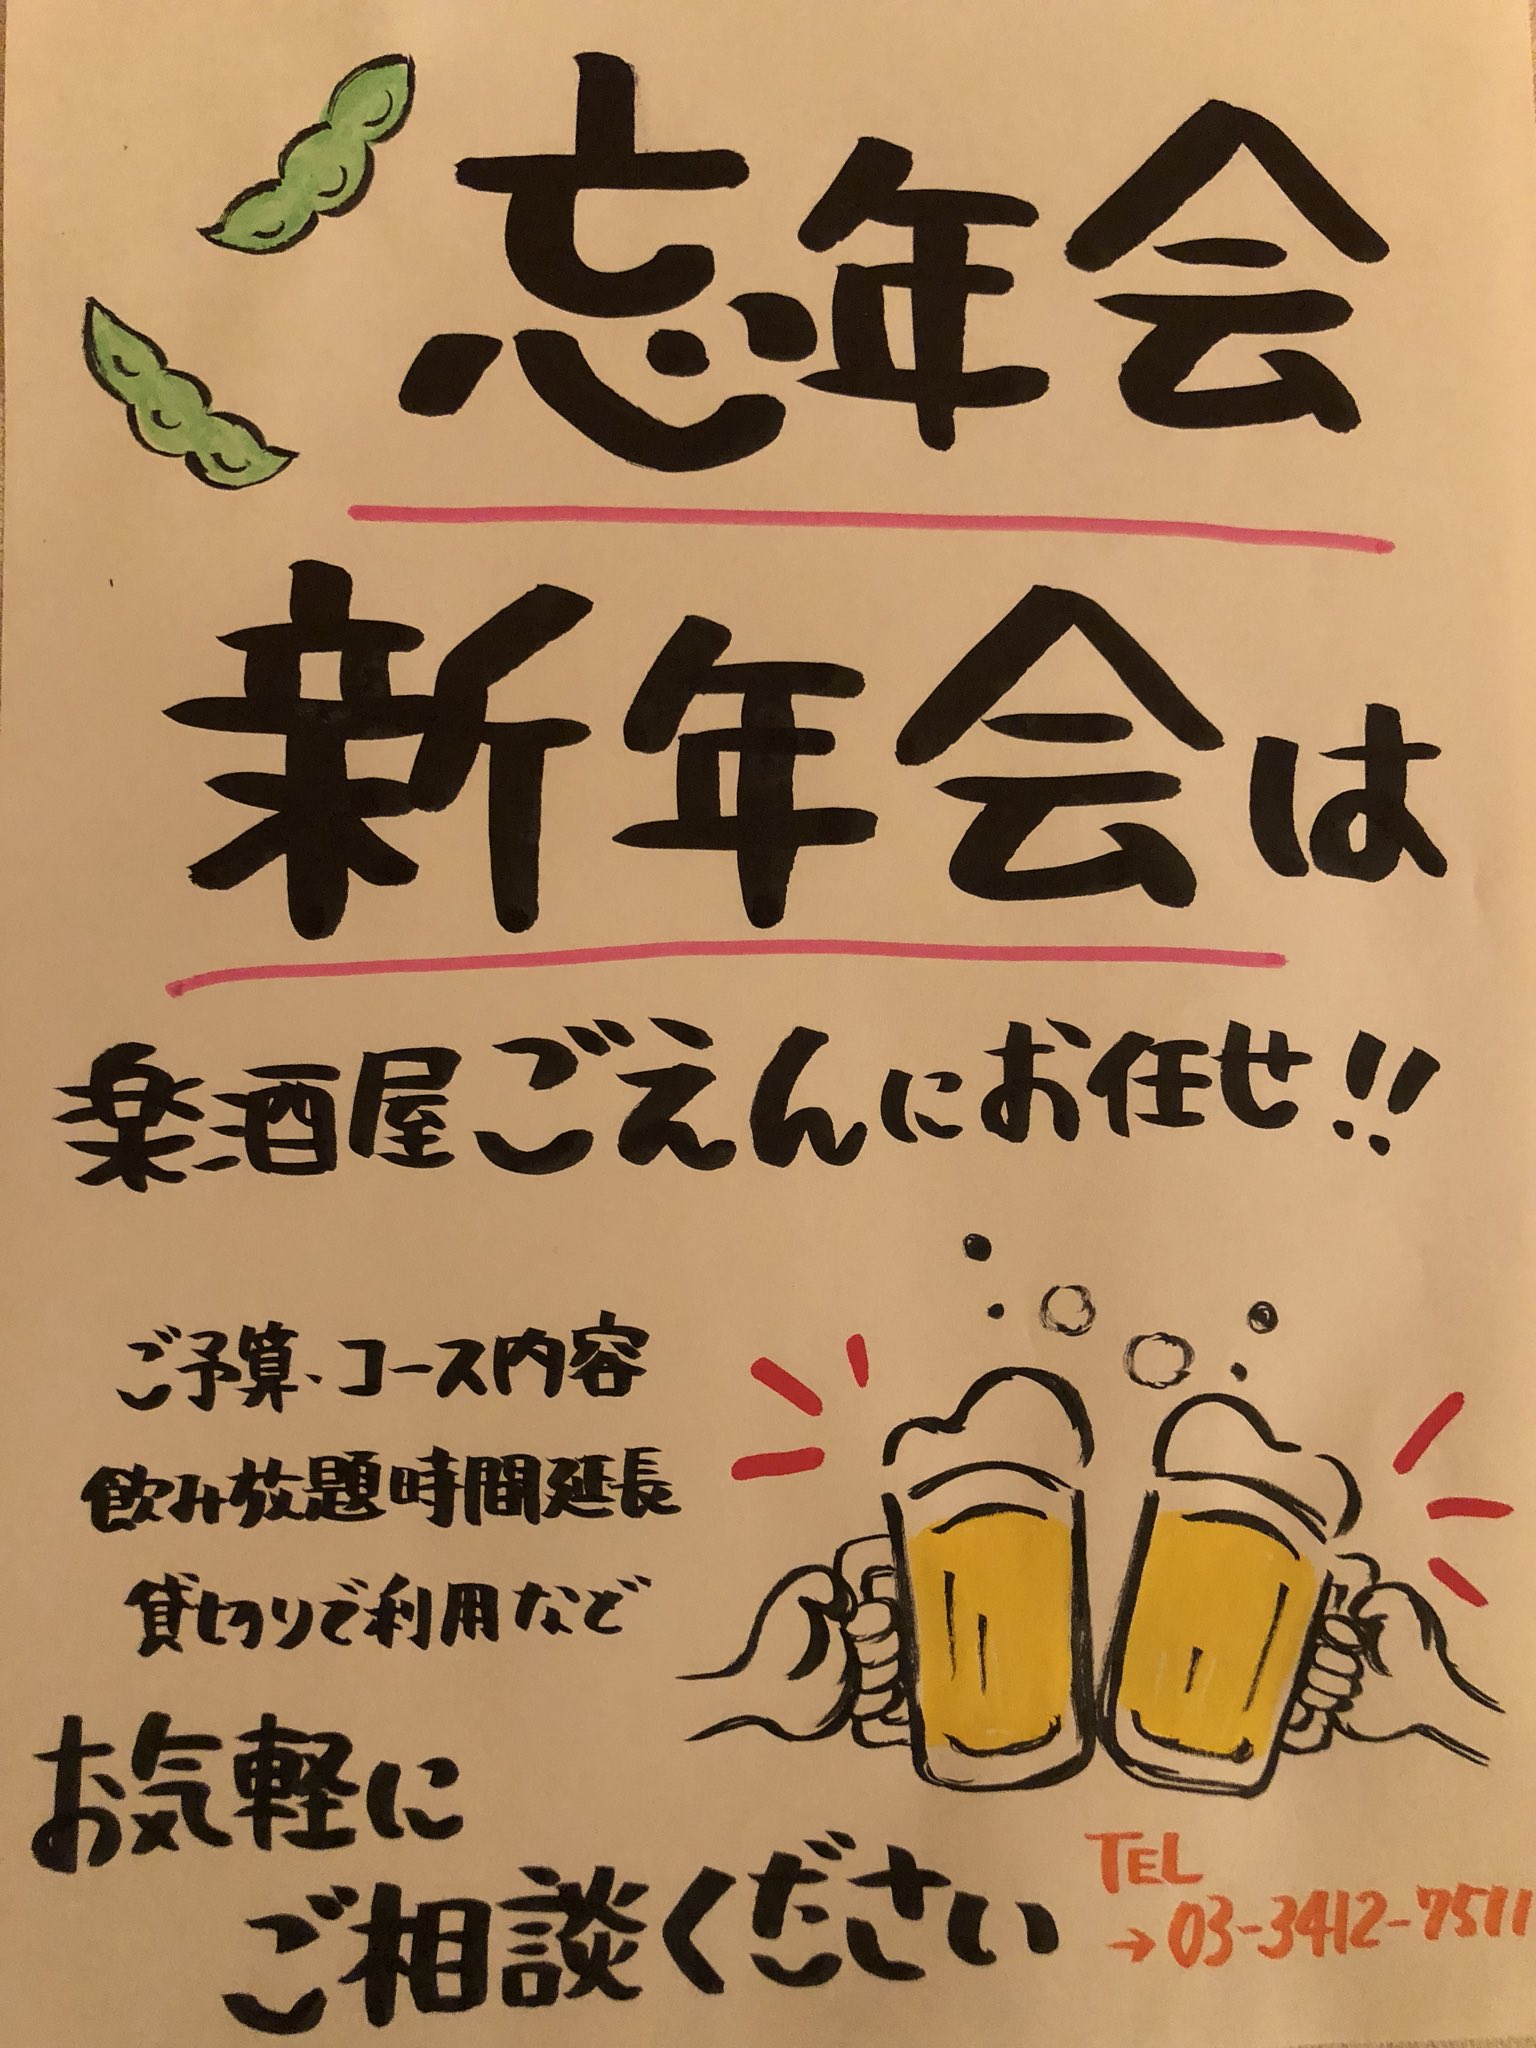 忘年会
新年会は
楽酒屋ごえんにお任せ!!
ご予算、コース内容
飲み放題時間延長
貸切りで利用など
お気軽に
ご相談ください
TEL
→03-3412-7511